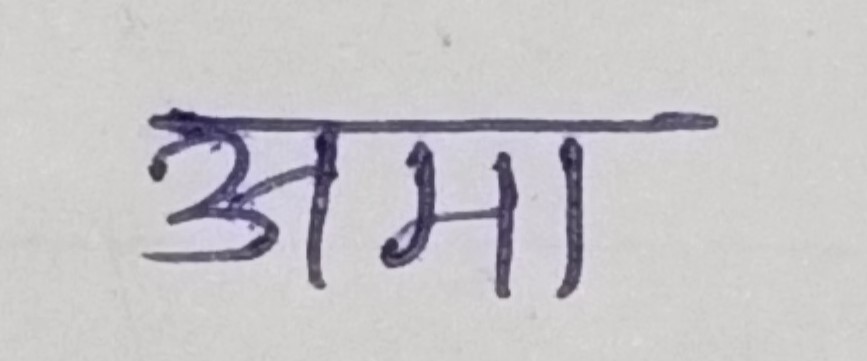 अमा